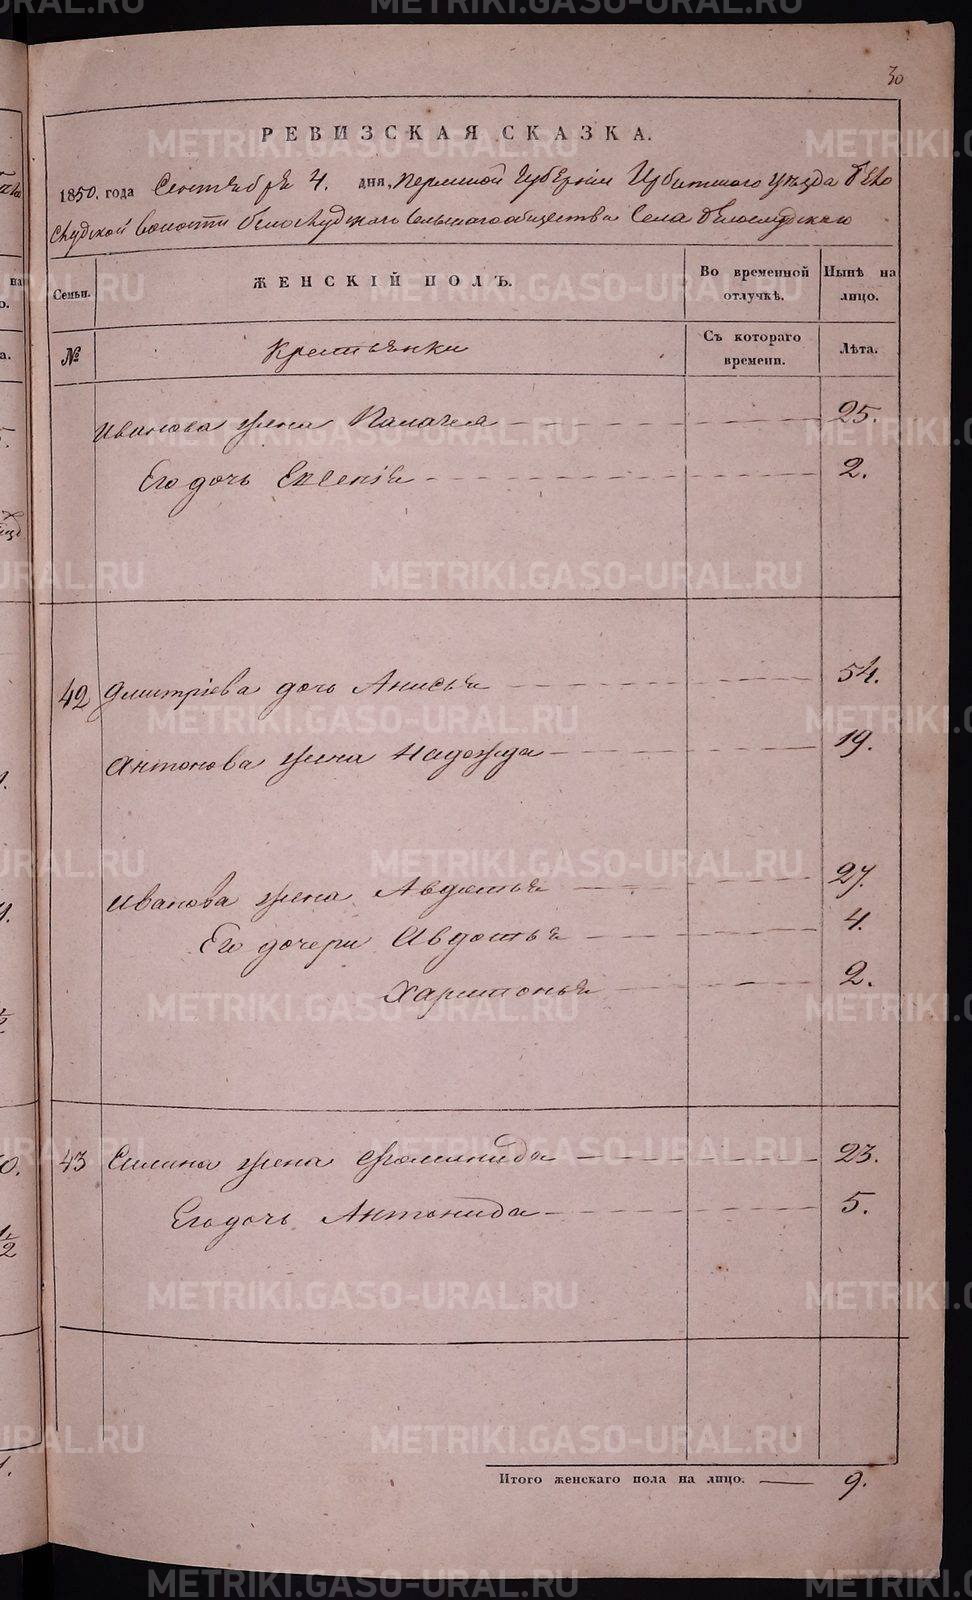 30
РЕВИЗСКАЯ СКАЗКА.
1850. года Сентября 4. дня, Пермской Губернiи Ирбитскаго уезда Бело
слудской волости Белослудскаго сельскаго общества Села Белослудскаго
Семьи.
ЖЕНСКІЙ ПОЛЪ.
Во временной отлучкѣ.
Нынѣ на лицо.
№
Крестьянки
Съ котораго времени.
Лѣта.
Иванова жена Палагея 25.
Его дочь Евгенiя 2.
42 Дмитрiева дочь Анисья 54.
Антонова жена Надежда 19.
Иванова жена Авдотья 27.
Его дочери Авдотья 4.
Харитонья 2.
43 Силина жена 23.
Его дочь Антонида 5.
Итого женскаго пола на лицо. 9.
METRIKI.GASO-URAL.RU